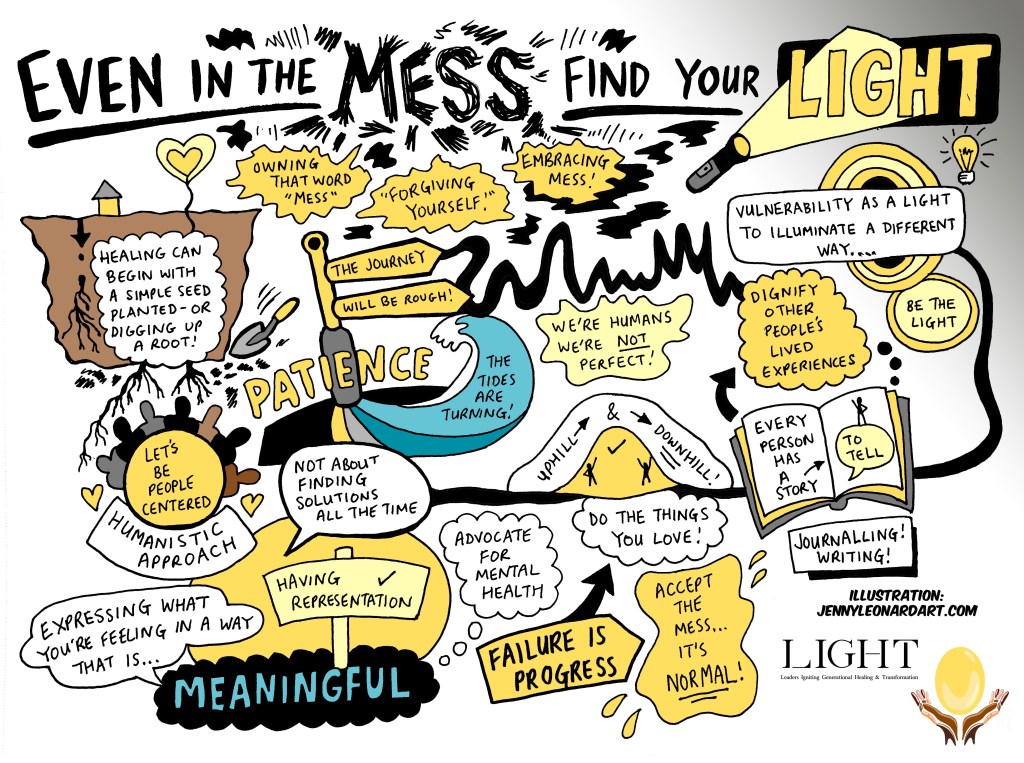 EVEN IN THE MESS FIND YOUR LIGHT
OWNING
THAT WORD
"MESS"
"FORGIVING
YOURSELF!"
EMBRACING
MESS!
VULNERABILITY AS A LIGHT
TO ILLUMINATE A DIFFERENT
WAY....
BE THE
LIGHT
HEALING CAN
BEGIN WITH
A SIMPLE SEED
PLANTED-OR
DIGGING UP
A ROOT!
THE JOURNEY
WILL BE ROUGH!
PATIENCE
THE
TIDES
ARE
TURNING!
WE'RE HUMANS
WE'RE NOT
PERFECT!
DIGNIFY
OTHER
PEOPLE'S
LIVED
EXPERIENCES
UPHILL & DOWNHILL!
EVERY
PERSON
HAS
A
STORY
TO
TELL
LET'S
BE
PEOPLE
CENTERED
HUMANISTIC
APPROACH
NOT ABOUT
FINDING
SOLUTIONS
ALL THE TIME
DO THE THINGS
YOU LOVE!
JOURNALLING!
WRITING!
ADVOCATE
FOR
MENTAL
HEALTH
HAVING
REPRESENTATION
EXPRESSING WHAT
YOU'RE FEELING IN A WAY
THAT IS...
MEANINGFUL
FAILURE IS
PROGRESS
ACCEPT
THE
MESS...
IT'S
NORMAL!
ILLUSTRATION:
JENNYLEONARDART.COM
LIGHT
Leaders Igniting Generational Healing & Transformation